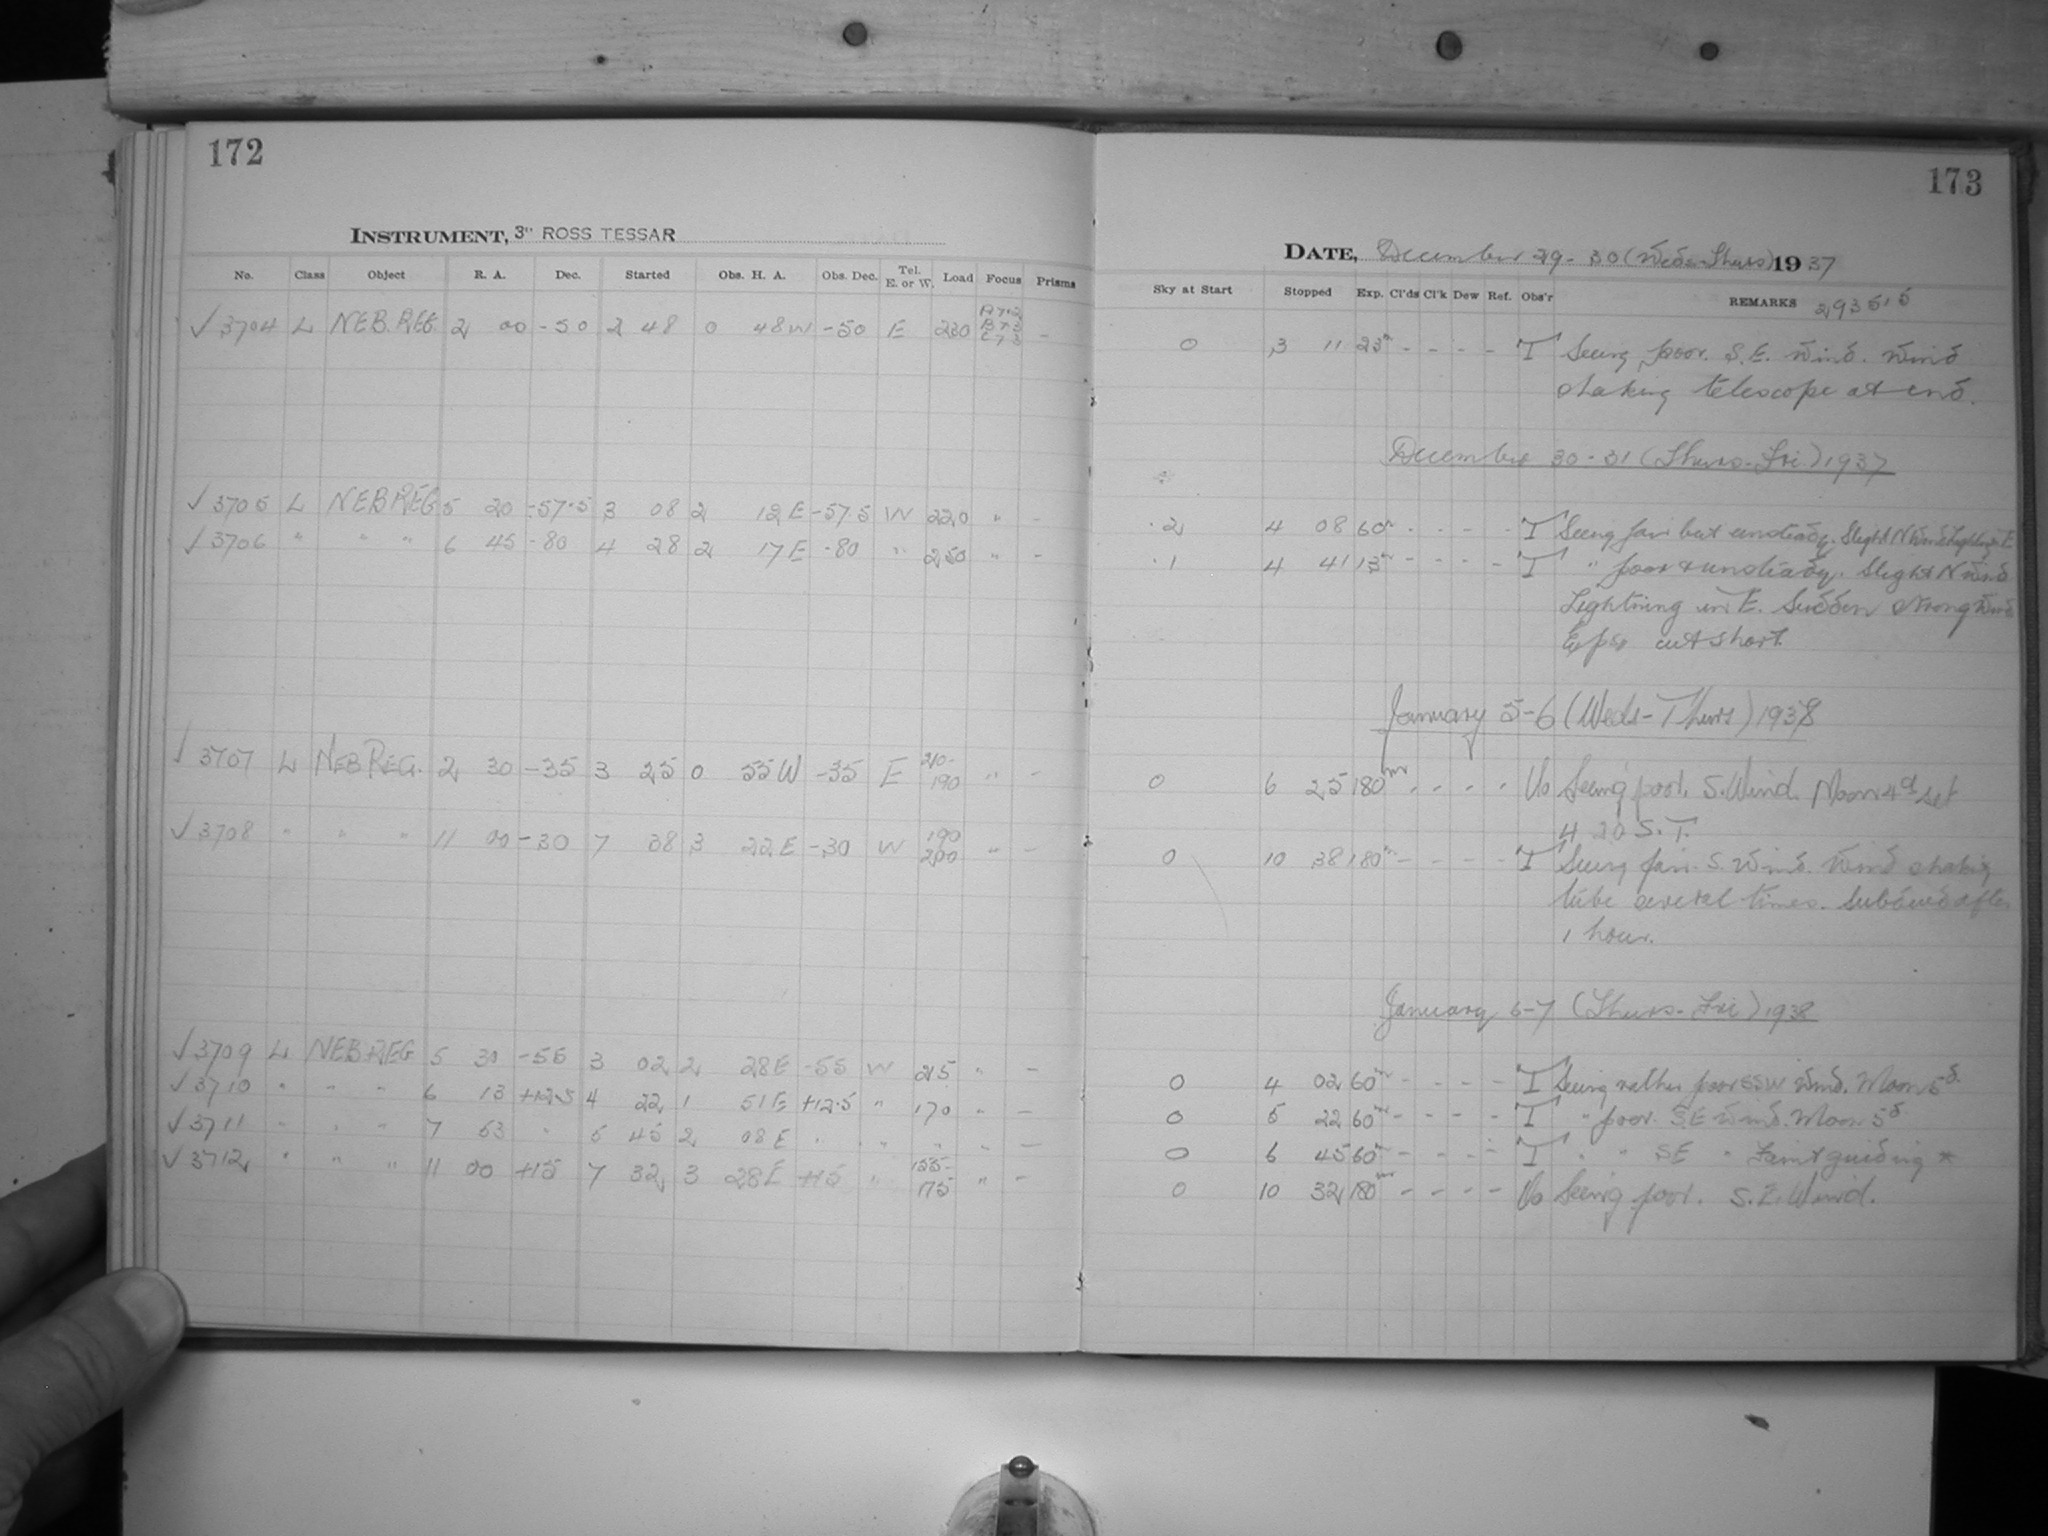 172
INSTRUMENT, 3" ROSS TESSAR
No. Class Object R. A. Dec. Started Obs. H. A. Obs. Dec. Tel. E. or W. Load Focus Prisms
√ 3704 L NEB. REG. 2 00 -50 2 48 0 48 W -50 E 230 -
√ 3705 L NEB REG 5 20 -57.5 3 08 2 12 E -57.5 W 220 " -
√ 3706 " " " 6 45 -80 4 28 2 17 E -80 " 250 " -
√ 3707 L NEB REG. 2 30 -35 3 25 0 55 W -35 E 210-190 " -
√ 3708 " " " 11 00 -30 7 38 3 22 E -30 W 190 200 " -
√ 3709 L NEB REG 5 30 -55 3 02 2 28 E -55 W 215 " -
√ 3710 " " " 6 13 +12.5 4 22 1 51 E +12.5 " 170 " -
√ 3711 " " " 7 53 " 5 45 2 08 E " " " " -
√ 3712 " " " 11 00 +15 7 32 3 28 E +15 " 155-175 " -
173
DATE, December 29-30 (Weds-Thurs) 1937
Sky at Start Stopped Exp. Cl'ds Cl'k Dew Ref. Obs'r REMARKS 29351.5
0 3 11 23m - - - - T Seeing poor. S.E. Wind. Wind
shaking telescope at end.
December 30-31 (Thurs-Fri) 1937
.2 4 08 60m - - - - T Seeing fair but unsteady. Slight N Wind Lightning in E
.1 4 41 13m - - - - T " poor & unsteady. Slight N Wind
Lightning in E. Sudden strong Wind
Expo cut short.
January 5-6 (Weds-Thurs) 1938
0 6 25 180m - - - - Vo Seeing poor. S. Wind. Moon 4d set
4 20 S.T.
0 10 38 180m - - - - T Seeing fair. S. Wind. Wind shaking
tube several times. Subdued after
1 hour.
January 6-7 (Thurs-Fri) 1938
0 4 02 60m - - - - T Seeing rather poor SSW Wind. Moon 5d
0 5 22 60m - - - - T " poor. SE Wind. Moon 5d
0 6 45 60m - - - - T " " SE " Faint guiding *
0 10 32 180m - - - - Vo Seeing poor. S.E. Wind.